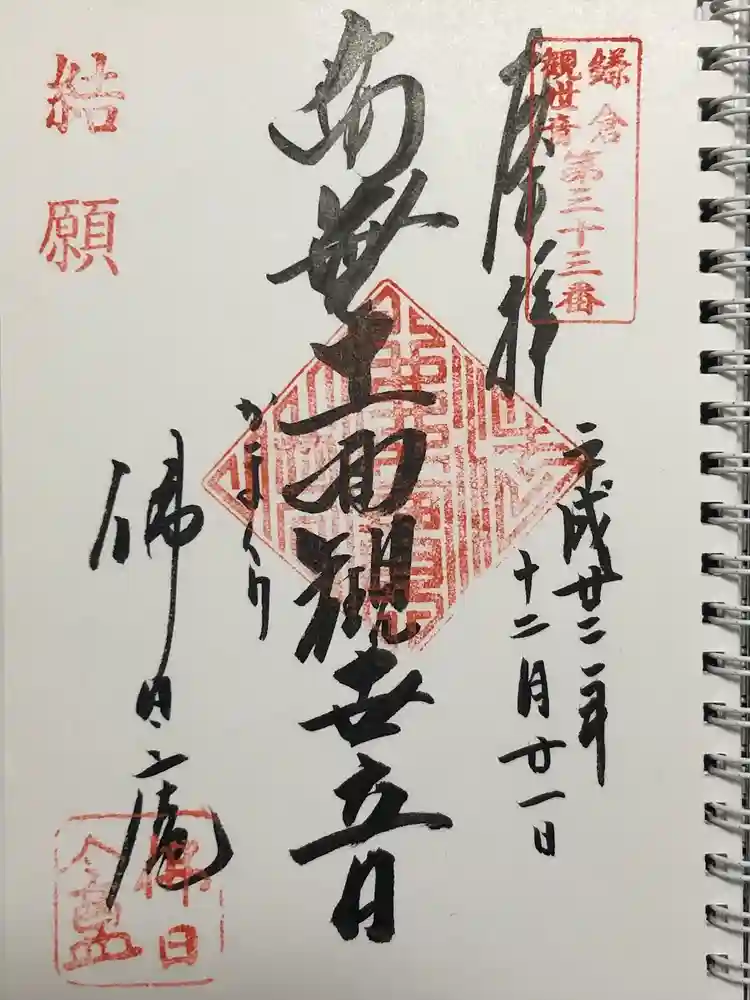 鎌倉
観世音
第三十三番
奉拝
平成廿二年
十二月廿一日
南無十一面観世音
かまくり
佛日庵
結願
佛日